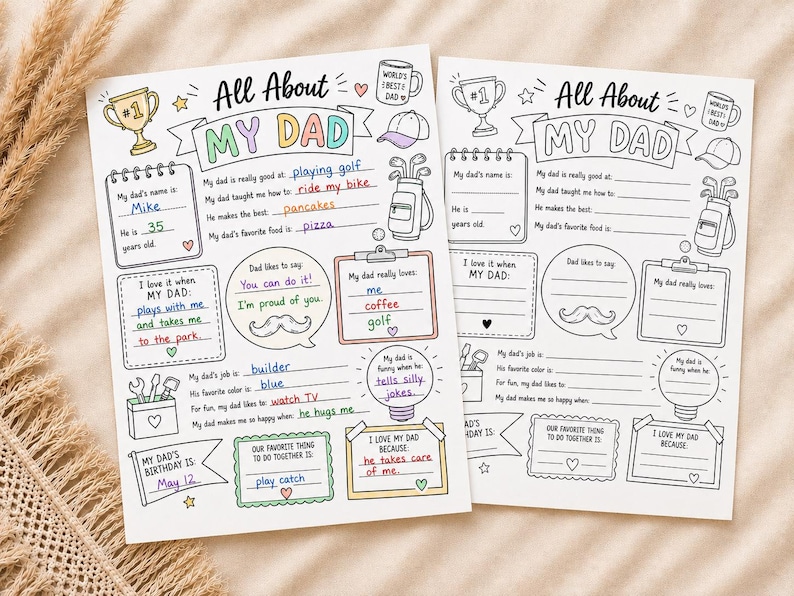 #1
All About
MY DAD
WORLD'S
BEST
DAD
My dad's name is:
Mike
He is 35
years old.
My dad is really good at: playing golf
My dad taught me how to: ride my bike
He makes the best: pancakes
My dad's favorite food is: pizza
I love it when
MY DAD:
plays with me
and takes me
to the park.
Dad likes to say:
You can do it!
I'm proud of you.
My dad really loves:
me
coffee
golf
My dad's job is: builder
His favorite color is: blue
For fun, my dad likes to: watch TV
My dad makes me so happy when: he hugs me
My dad is
funny when he:
tells silly
jokes.
MY DAD'S
BIRTHDAY IS:
May 12
OUR FAVORITE THING
TO DO TOGETHER IS:
play catch
I LOVE MY DAD
BECAUSE:
he takes care
of me.
#1
All About
MY DAD
WORLD'S
BEST
DAD
My dad's name is:
He is
years old.
My dad is really good at:
My dad taught me how to:
He makes the best:
My dad's favorite food is:
I love it when
MY DAD:
Dad likes to say:
My dad really loves:
My dad's job is:
His favorite color is:
For fun, my dad likes to:
My dad makes me so happy when:
My dad is
funny when he:
MY DAD'S
BIRTHDAY IS:
OUR FAVORITE THING
TO DO TOGETHER IS:
I LOVE MY DAD
BECAUSE: